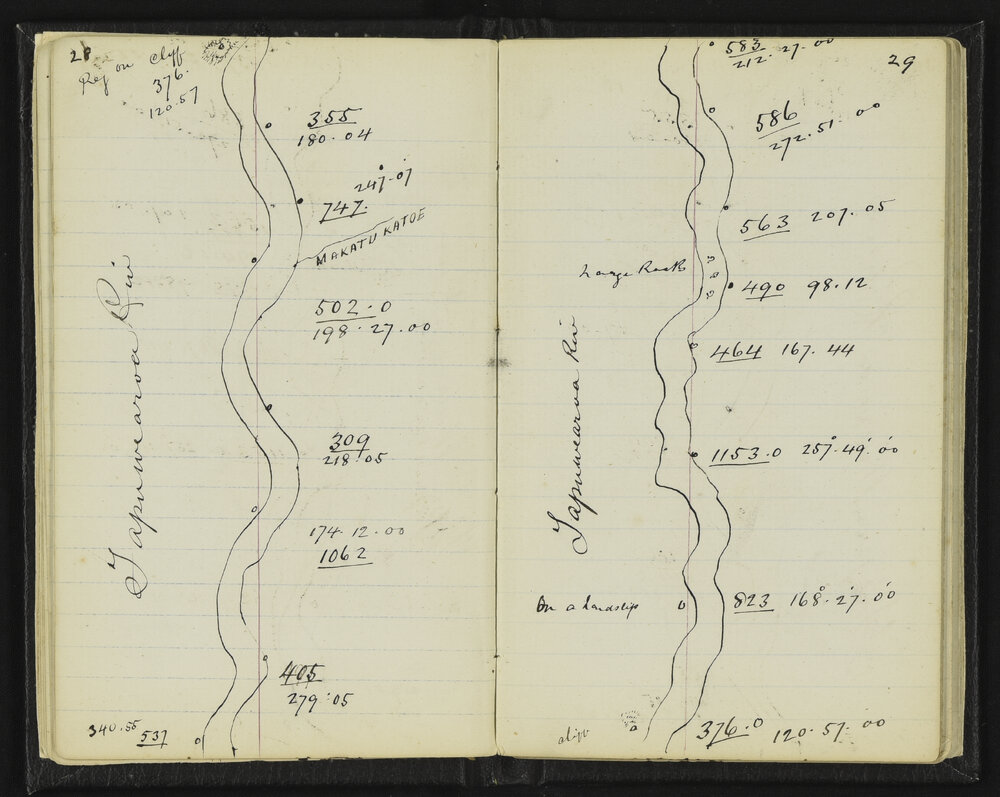 28
Peg on cliff
376.
120.57
355
180.04
247°.07
747.
MAKATU KATOE
502.0
198.27.00
Tapuwaeroa Riv
309
218.05
174.12.00
1062
405
279.05
340.55
537
583
212.27.00
29
586
272.51.00
563 207.05
Large Rocks
490 98.12
464 167.44
Tapuwaeroa Riv
1153.0 257°.49'.00
On a landslip
823 168°.27'.00
cliff
376.0 120.57.00